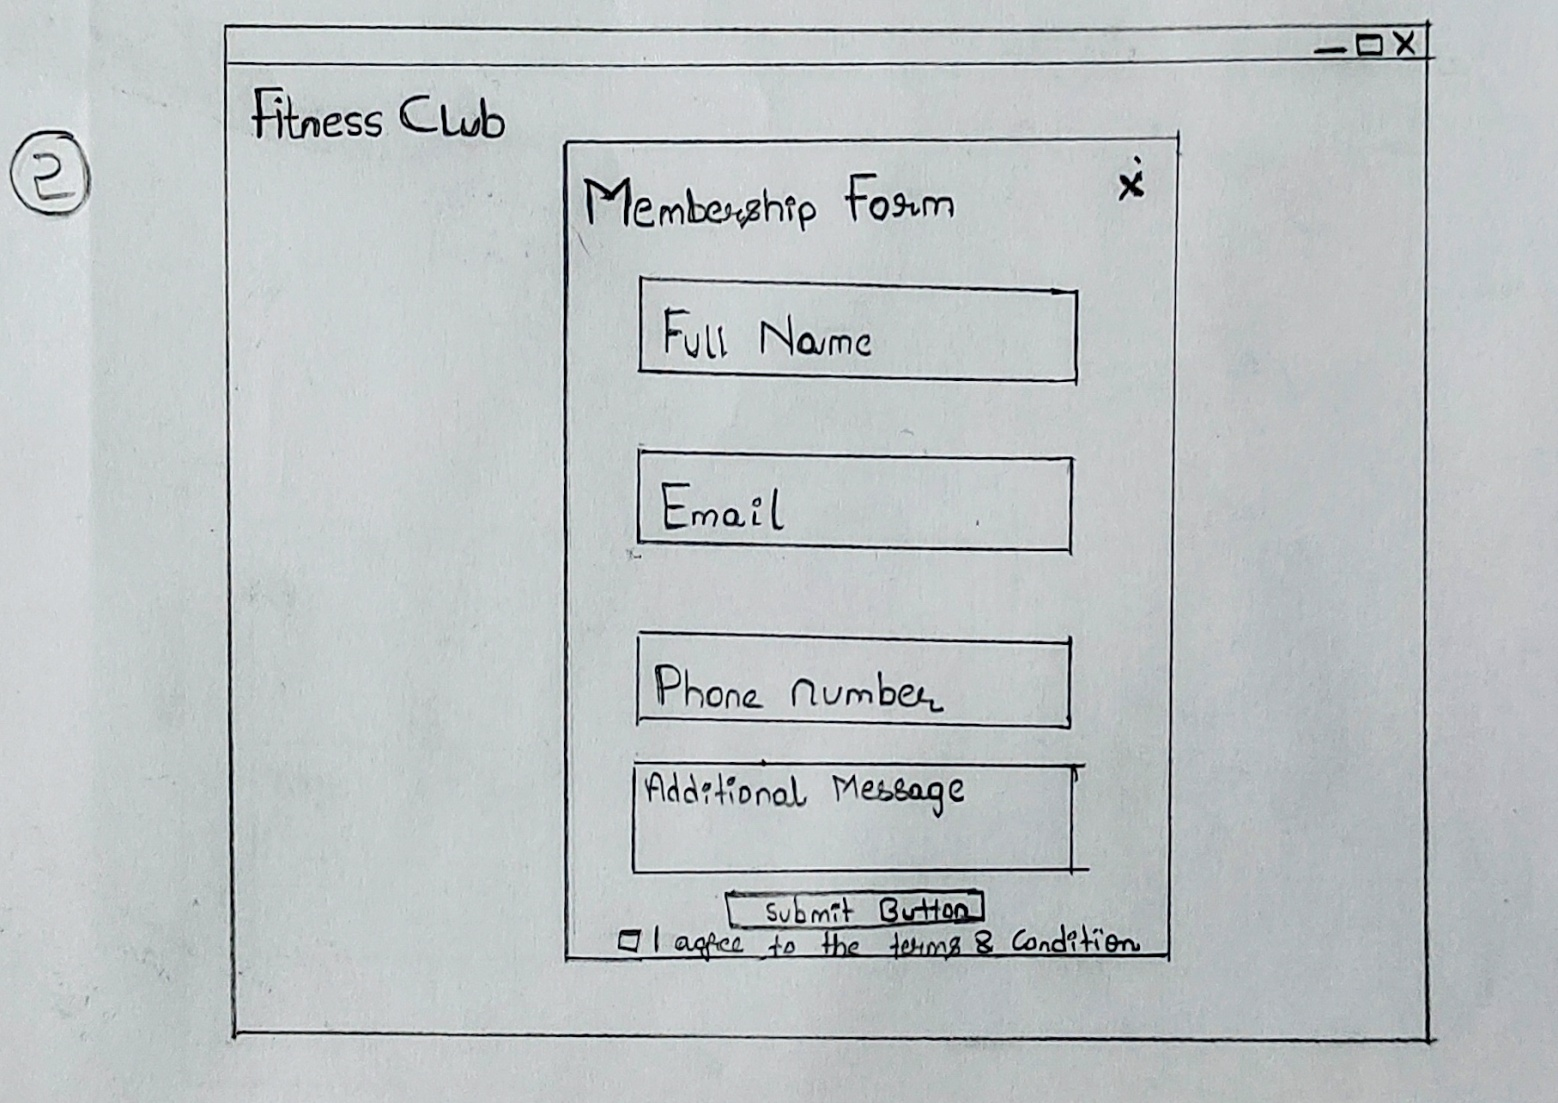 2
Fitness Club
Membership Form
Full Name
Email
Phone number
Additional Message
Submit Button
I agree to the terms & Condition